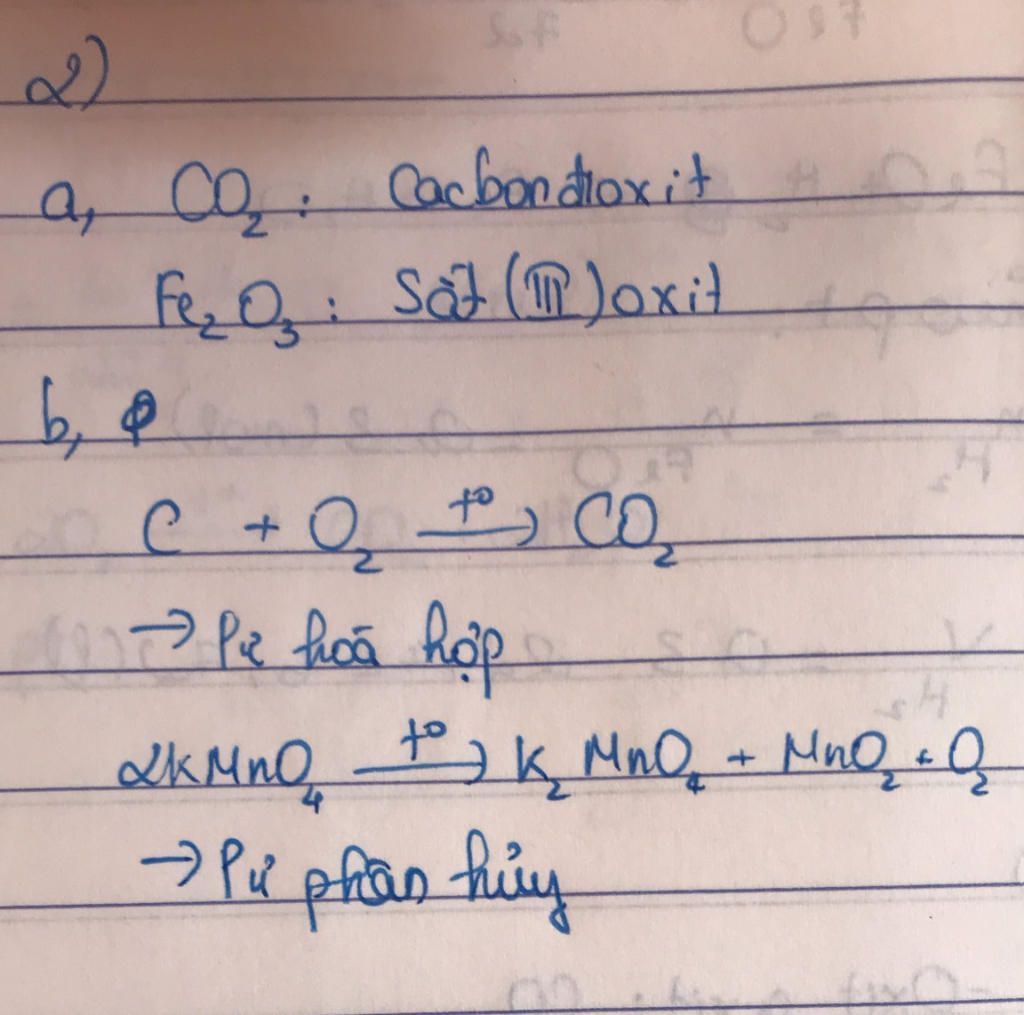 2)
a, CO₂ : Cacbondioxit
Fe₂O₃ : Sắt (III) oxit
b,
C + O₂ —t°→ CO₂
→ Pư hoá hợp
2KMnO₄ —t°→ K₂MnO₄ + MnO₂ + O₂
→ Pư phân hủy